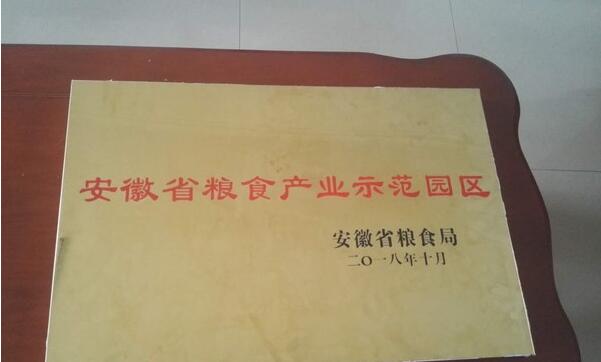 安徽省粮食产业示范园区
安徽省粮食局
二〇一八年十月